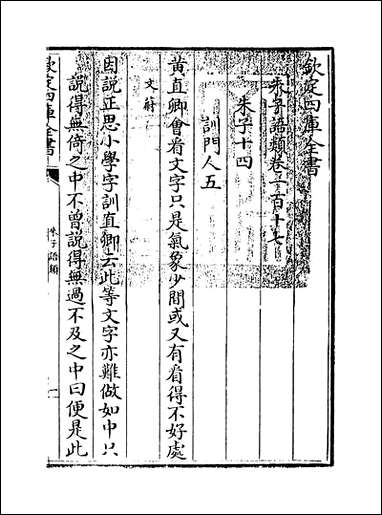 欽定四庫全書
朱子語類卷一百十七
朱子十四
訓門人五
黃直卿會看文字只是氣象少間或又有看得不好處
文蔚
因説正思小學字訓直卿云此等文字亦難做如中只
説得無倚之中不曾説得無過不及之中曰便是此
欽定四庫全書
朱子語類
一